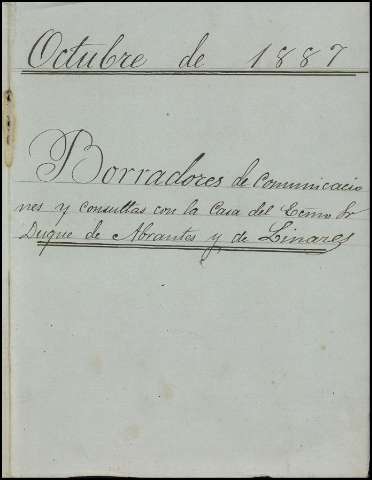 Octubre de 1887
Borradores de comunicacio
nes y consultas con la Casa del Ecmo Sr
Duque de Abrantes y de Linares